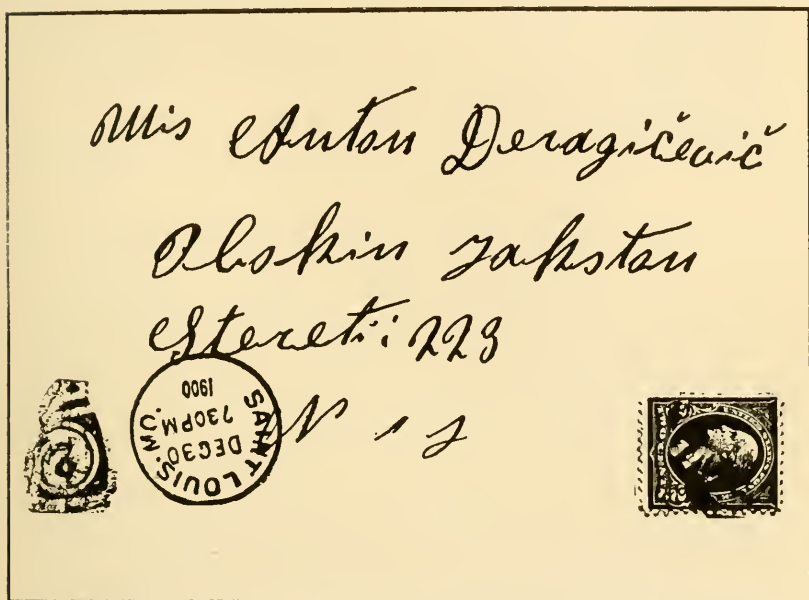 Mis Anton Deragičević
Obskin Jakstan
Stereti: 223
N 1 J
SAINT LOUIS, MO.
DEC 30
730PM
1900